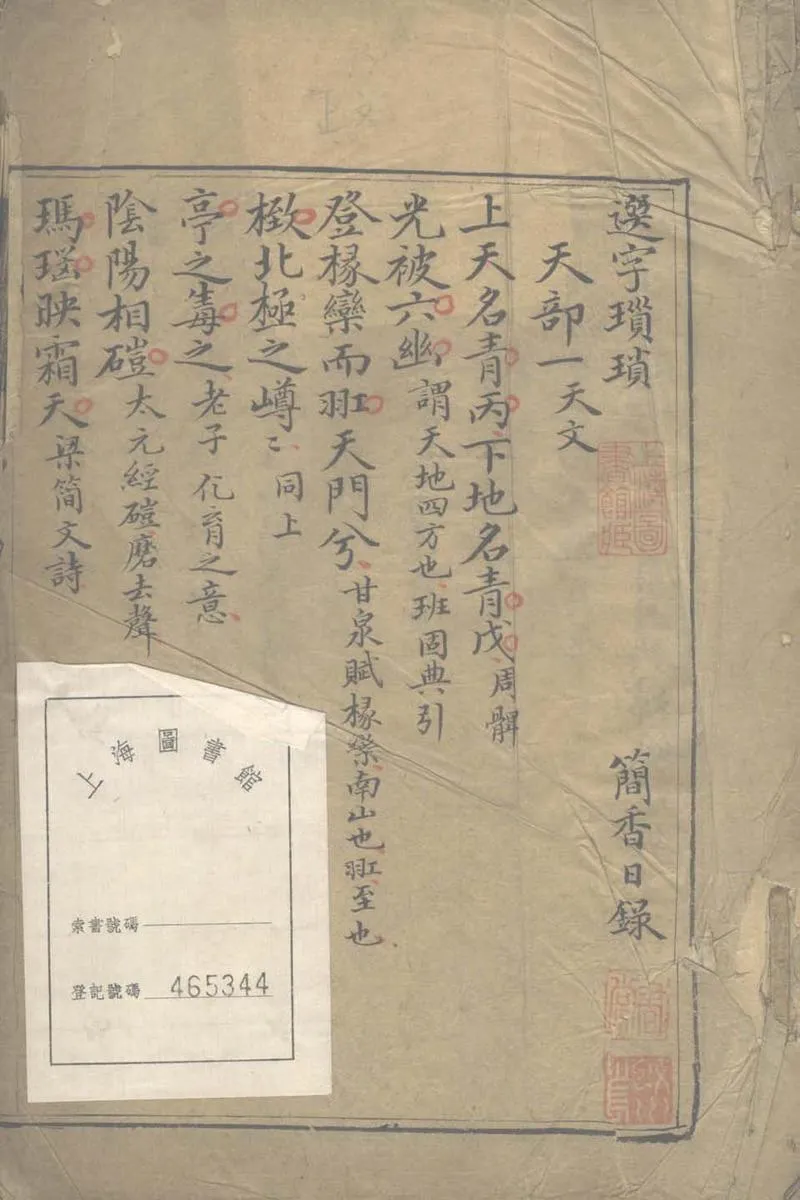 選字瑣瑣 簡香日錄
天部一 天文
上天名青丙下地名青戊 周髀
光被六幽 謂天地四方也 班固典引
登椽欒而羾天門兮 甘泉賦椽欒南山也羾至也
橔北極之嶟〻 同上
亭之毒之 老子 化育之意
陰陽相磑 太元經磑磨去聲
瑪瑙映霜天 梁簡文詩
上海圖書館
索書號碼
登記號碼 465344